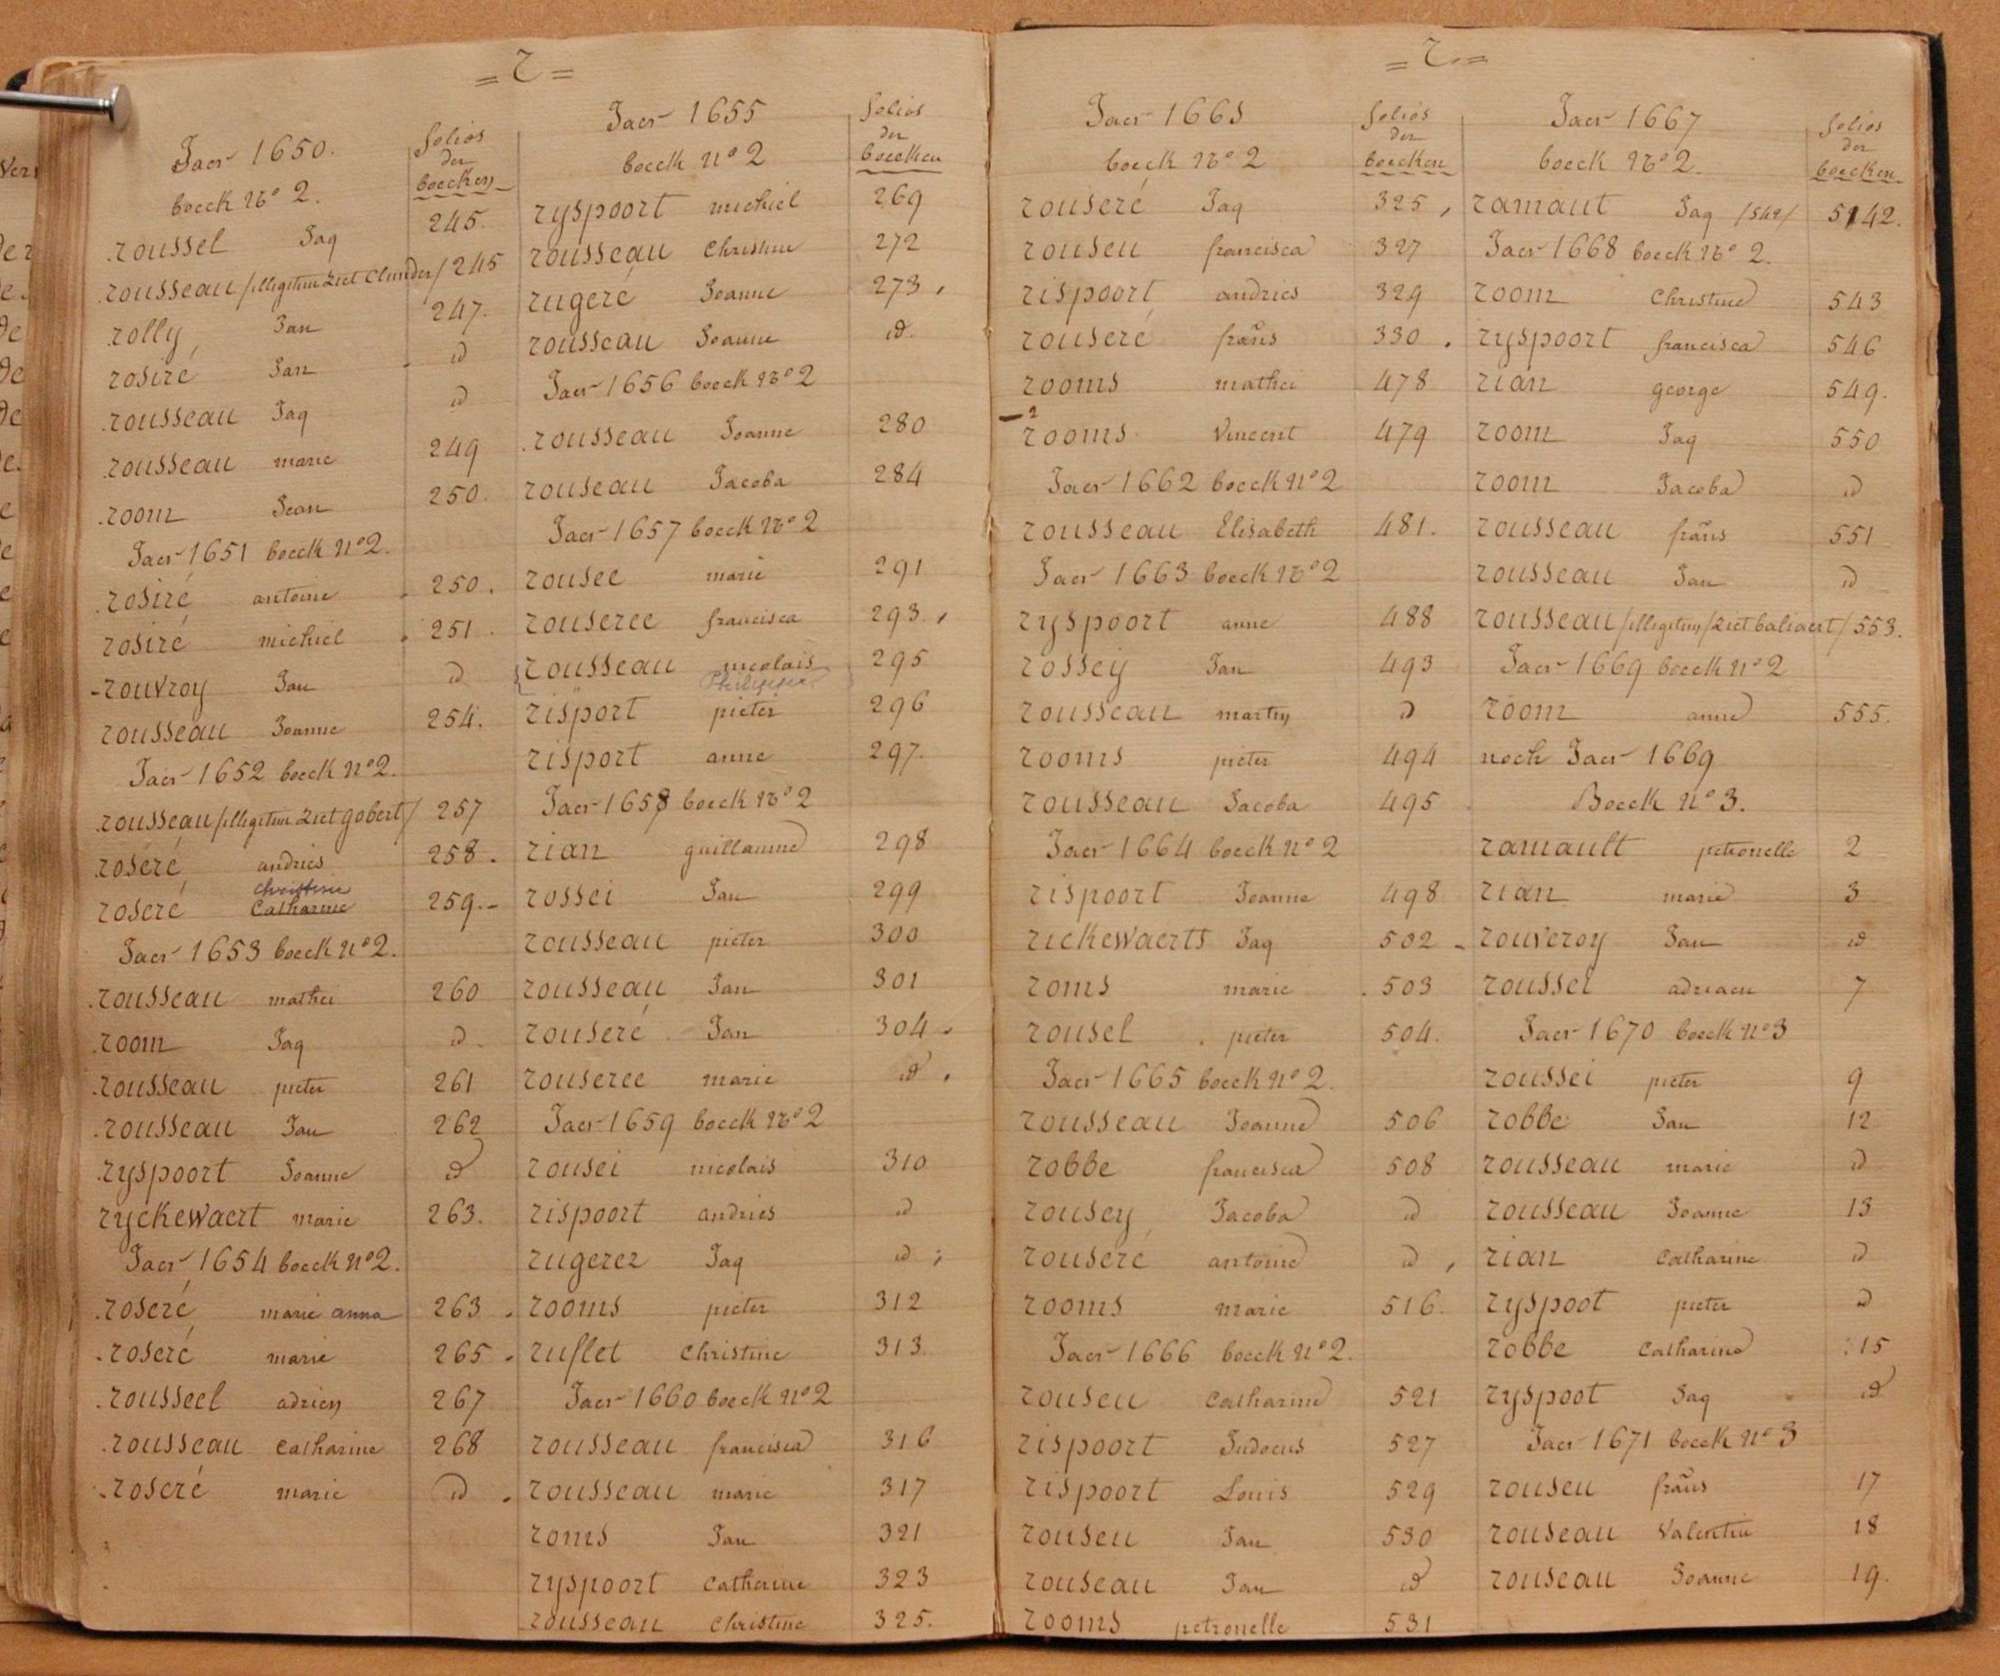 = R =
Jaer 1650.
folios
der
boecken
boeck No 2.
roussel Jaq 245.
rousseau /illegitim ziet Clunder/ 245
rolly Jan 247.
rosiré Jan id
rousseau Jaq id
rousseau marie 249
room Jean 250.
Jaer 1651 boeck No 2.
rosiré antoine 250.
rosiré michiel 251.
rouvroy Jan id
rousseau Joanne 254.
Jaer 1652 boeck No 2.
rousseau /illegitim ziet gobert/ 257
roseré andries 258.
christine
roseré Catharine 259.
Jaer 1653 boeck No 2.
rousseau mathei 260
room Jaq id
rousseau pieter 261
rousseau Jan 262
ryspoort Joanne id
ryckewaert marie 263.
Jaer 1654 boeck No 2.
roseré marie anna 263.
roseré marie 265.
rousseel adrien 267
rousseau Catharine 268
roseré marie id.
Jaer 1655
folios
der
boecken
boeck No 2
ryspoort michiel 269
rousseau Christine 272
rugeré Joanne 273,
rousseau Joanne id.
Jaer 1656 boeck No 2
rousseau Joanne 280
rouseau Jacoba 284
Jaer 1657 boeck No 2
rousee marie 291
rouseree francisca 293.,
rousseau nicolais 295
Philippe
risport pieter 296
risport anne 297.
Jaer 1658 boeck No 2
rian guillaume 298
rossei Jan 299
rousseau pieter 300
rousseau Jan 301
rouseré Jan 304.
rouseree marie id.
Jaer 1659 boeck No 2
rousei nicolais 310
rispoort andries id
rugerez Jaq id;
rooms pieter 312
ruflet Christine 313.
Jaer 1660 boeck No 2
rousseau francisca 316
rousseau marie 317
roms Jan 321
ryspoort Catherine 323
rousseau Christine 325.
= R. =
Jaer 1661
folios
der
boecken
boeck No 2
rouseré Jaq 325,
rouseu francisca 327
rispoort andries 329
rouseré frans 330.
rooms mathei 478
rooms Vincent 479
Jaer 1662 boeck No 2
rousseau Elisabeth 481.
Jaer 1663 boeck No 2
ryspoort anne 488
rossey Jan 493
rousseau martin id
rooms pieter 494
rousseau Jacoba 495
Jaer 1664 boeck No 2
rispoort Joanne 498
rickewaerts Jaq 502
roms marie 503
rousel pieter 504.
Jaer 1665 boeck No 2.
rousseau Joanne 506
robbe francisca 508
rousey Jacoba id
rouseré antoine id,
rooms marie 516.
Jaer 1666 boeck No 2.
rouseu Catharine 521
rispoort Judocus 527
rispoort Louis 529
rouseu Jan 530
rouseau Jan id
rooms petronelle 531
Jaer 1667
folios
der
boecken
boeck No 2.
ramaut Jaq /542/ 5142.
Jaer 1668 boeck No 2.
room Christine 543
ryspoort francisca 546
rian george 549.
room Jaq 550
room Jacoba id
rousseau frans 551
rousseau Jan id
rousseau /illegitim/ ziet baliaert/ 553.
Jaer 1669 boeck No 2
room anne 555.
noch Jaer 1669
Boeck No 3.
ramault petronelle 2
rian marie 3
rouveroy Jan id
roussel adriaen 7
Jaer 1670 boeck No 3
roussei pieter 9
robbe Jan 12
rousseau marie id
rousseau Joanne 13
rian Catharine id
ryspoot pieter id
robbe Catharine 15
ryspoot Jaq id
Jaer 1671 boeck No 3
rouseu frans 17
rouseau Valentin 18
rouseau Joanne 19.